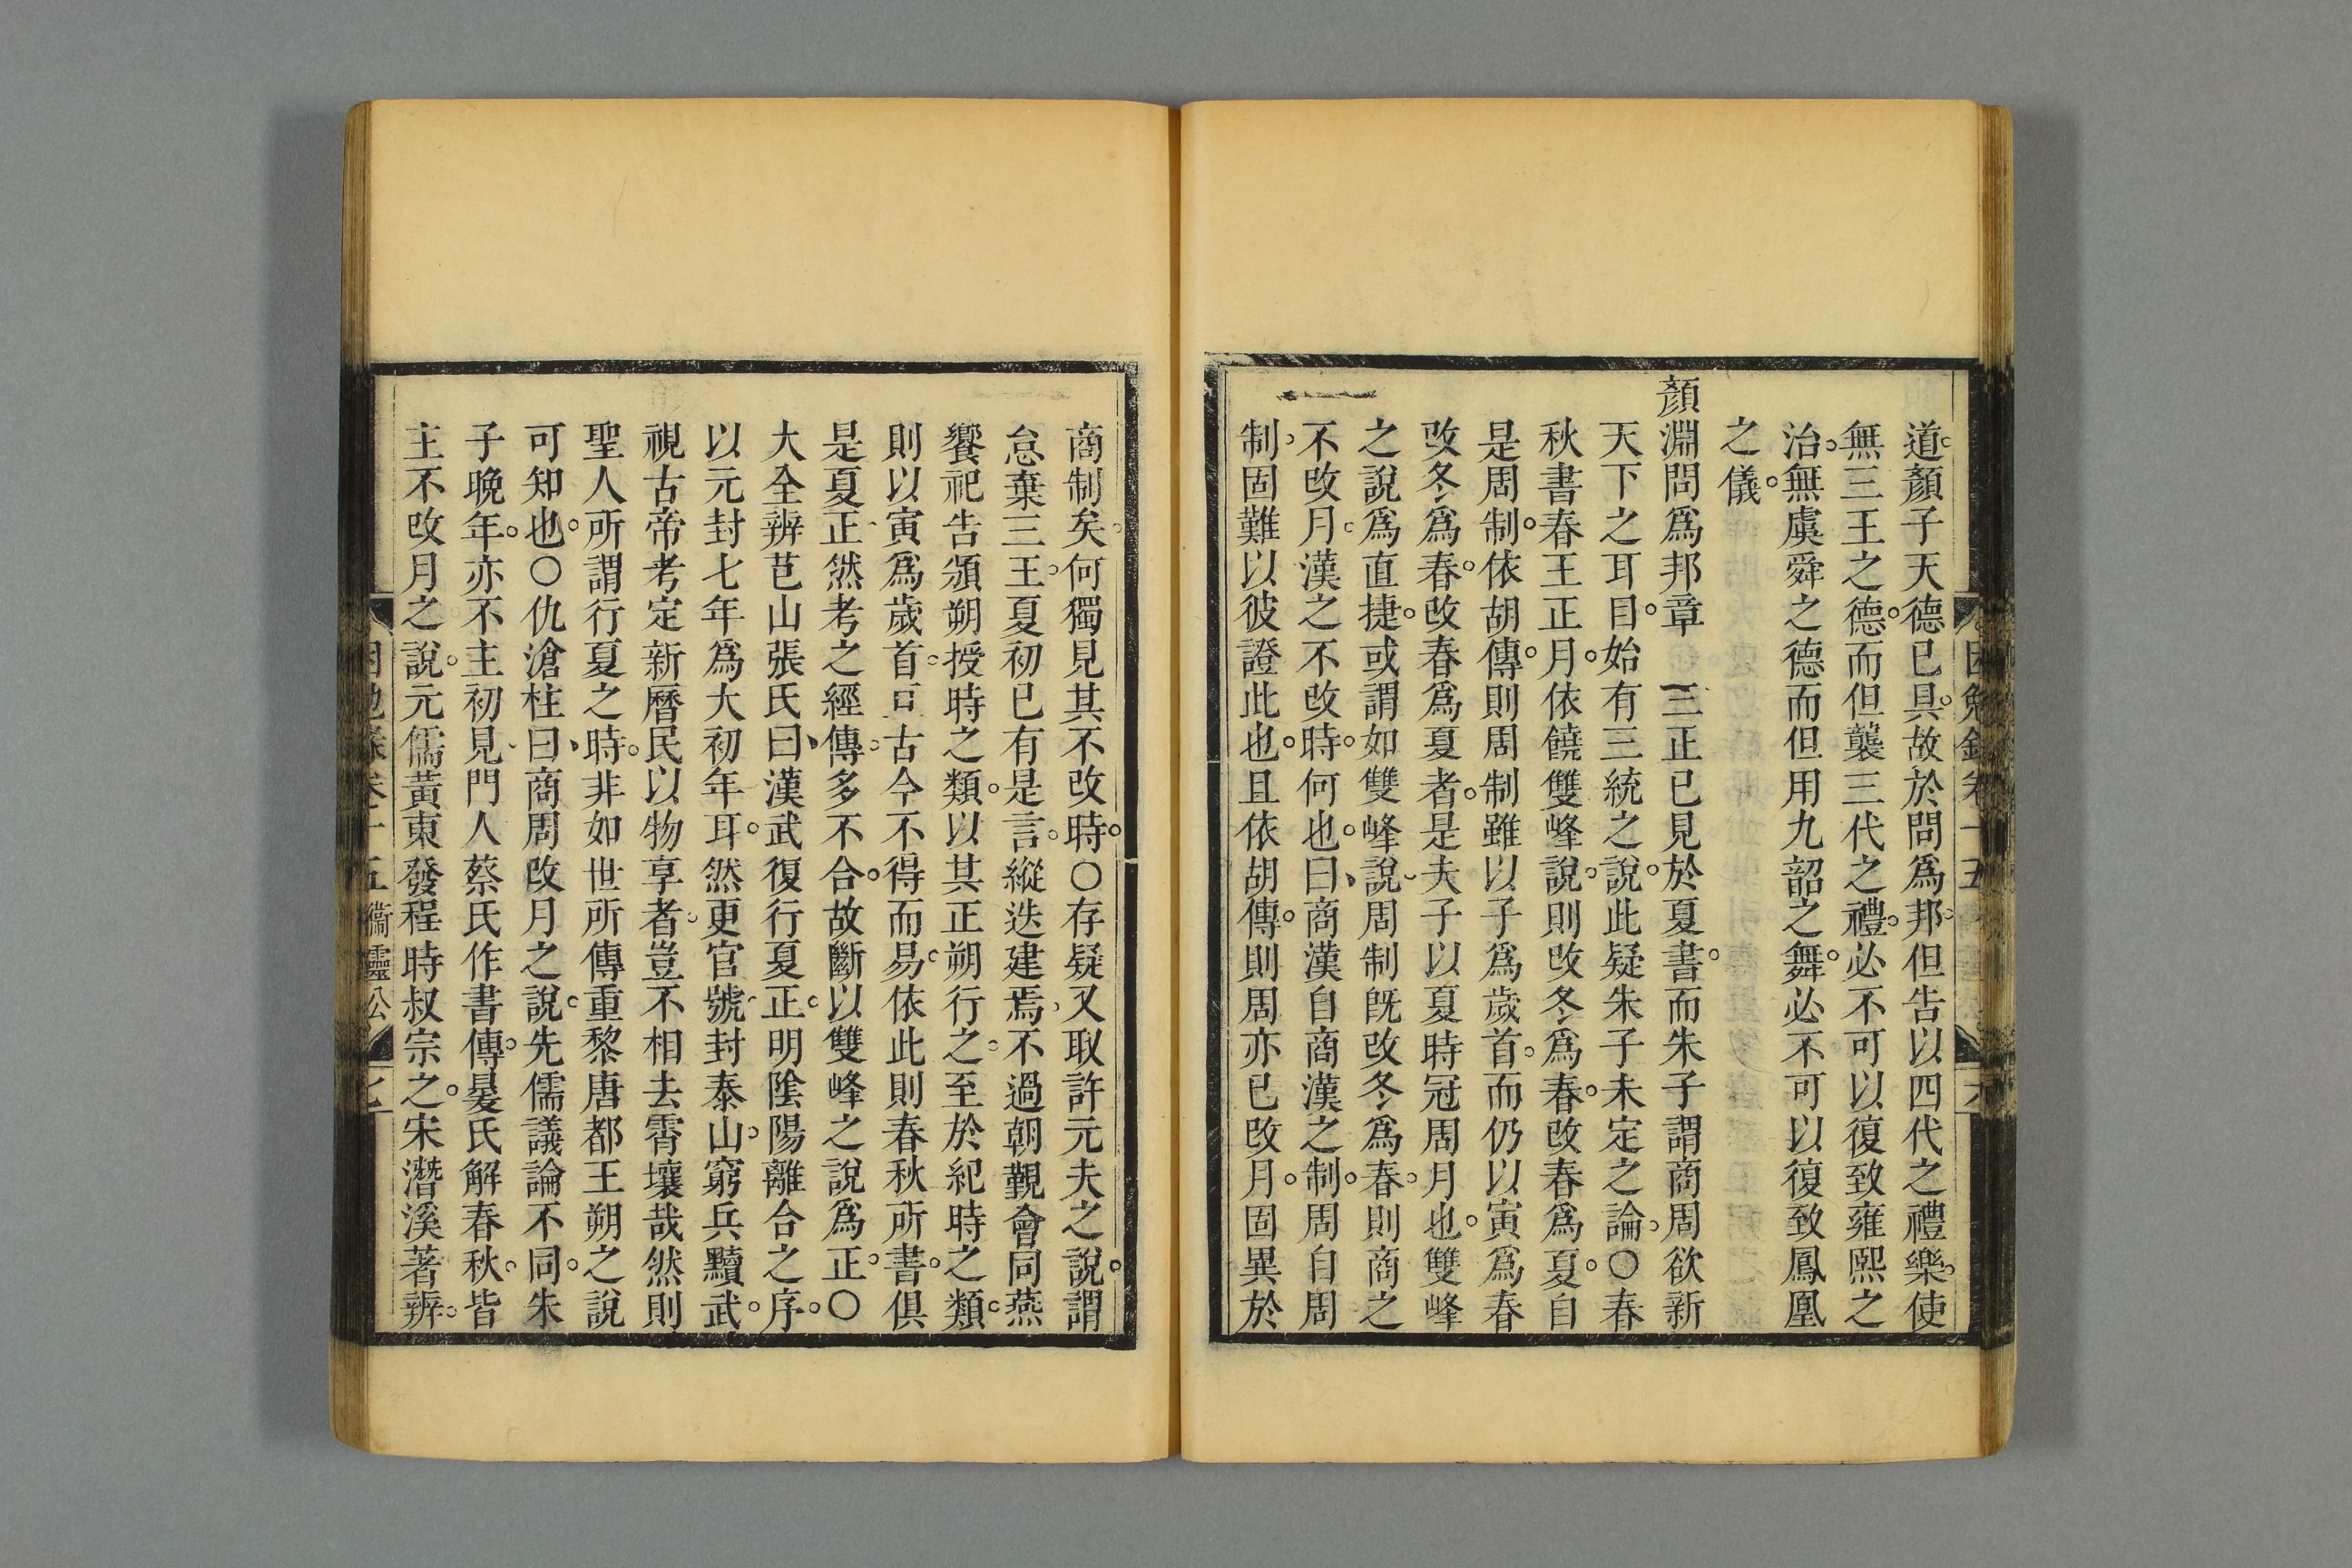 道顏子天德已具故於問爲邦但告以四代之禮樂使
無三王之德而但襲三代之禮必不可以復致雍熙之
治無虞舜之德而但用九韶之舞必不可以復致鳳凰
之儀
顏淵問爲邦章　三正已見於夏書而朱子謂商周欲新
天下之耳目始有三統之說此疑朱子未定之論○春
秋書春王正月依饒雙峰說則改冬爲春改春爲夏自
是周制依胡傳則周制雖以子爲歲首而仍以寅爲春
改冬爲春改春爲夏者是夫子以夏時冠周月也雙峰
之說爲直捷或謂如雙峰說周制旣改冬爲春則商之
不改月漢之不改時何也曰商漢自商漢之制周自周
制固難以彼證此也且依胡傳則周亦已改月固異於
商制矣何獨見其不改時○存疑又取許元夫之說謂
怠棄三王夏初已有是言縱迭建焉不過朝覲會同燕
饗祀告頒朔授時之類以其正朔行之至於紀時之類
則以寅爲歲首亘古今不得而易依此則春秋所書俱
是夏正然考之經傳多不合故斷以雙峰之說爲正○
大全辨芑山張氏曰漢武復行夏正明陰陽離合之序
以元封七年爲大初年耳然更官號封泰山窮兵黷武
視古帝考定新曆民以物享者豈不相去霄壤哉然則
聖人所謂行夏之時非如世所傳重黎唐都王朔之說
可知也○仇滄柱曰商周改月之說先儒議論不同朱
子晚年亦不主初見門人蔡氏作書傳㬊氏解春秋皆
主不改月之說元儒黃東發程時叔宗之宋潛溪著辨
衞靈公